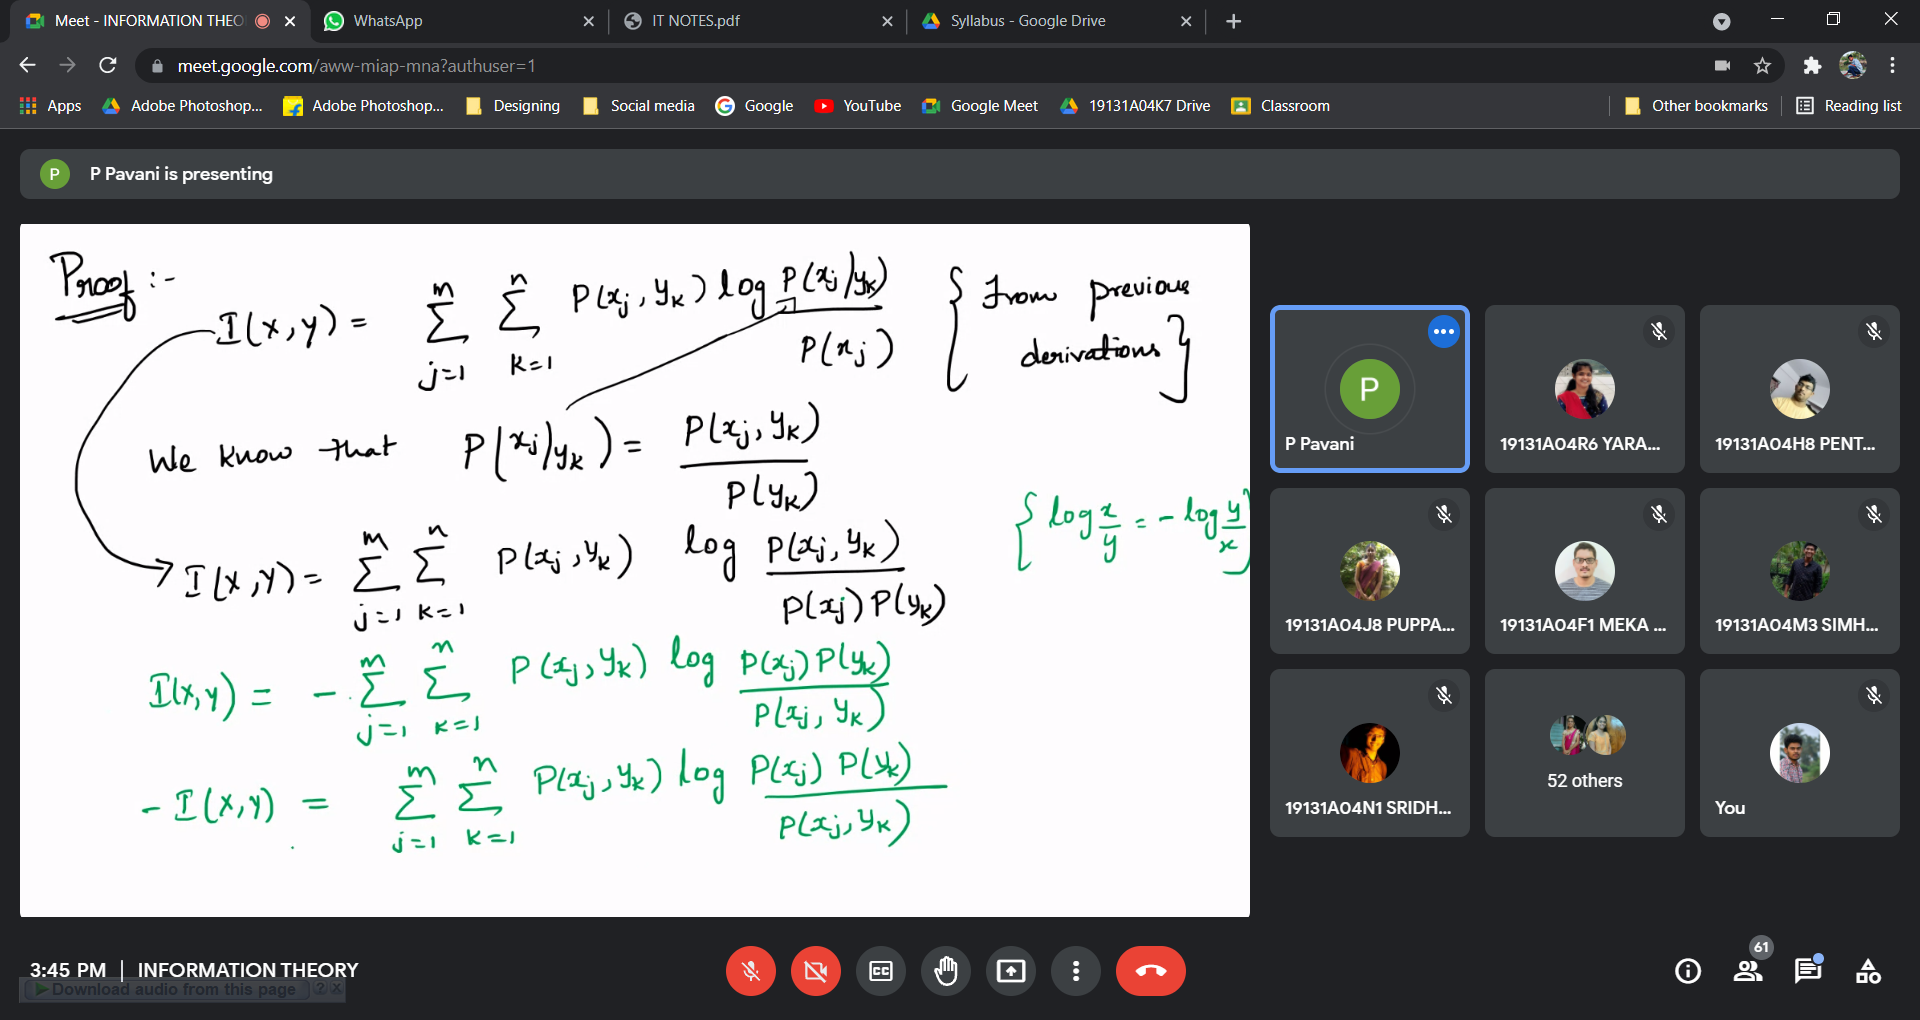 Meet - INFORMATION THEO
WhatsApp
IT NOTES.pdf
Syllabus - Google Drive
meet.google.com/aww-miap-mna?authuser=1
Apps
Adobe Photoshop...
Adobe Photoshop...
Designing
Social media
Google
YouTube
Google Meet
19131A04K7 Drive
Classroom
Other bookmarks
Reading list
P
P Pavani is presenting
Proof :-
I(x,y) = ∑_{j=1}^{m} ∑_{k=1}^{n} P(xj, yk) log P(xj/yk) / P(xj) { From previous derivations }
We know that P(xj/yk) = P(xj, yk) / P(yk)
{ log x/y = - log y/x }
I(x,y) = ∑_{j=1}^{m} ∑_{k=1}^{n} P(xj, yk) log P(xj, yk) / P(xj) P(yk)
I(x,y) = - ∑_{j=1}^{m} ∑_{k=1}^{n} P(xj, yk) log P(xj) P(yk) / P(xj, yk)
- I(x,y) = ∑_{j=1}^{m} ∑_{k=1}^{n} P(xj, yk) log P(xj) P(yk) / P(xj, yk)
P
P Pavani
19131A04R6 YARA...
19131A04H8 PENT...
19131A04J8 PUPPA...
19131A04F1 MEKA ...
19131A04M3 SIMH...
19131A04N1 SRIDH...
52 others
You
3:45 PM | INFORMATION THEORY
Download audio from this page ? X
CC
61